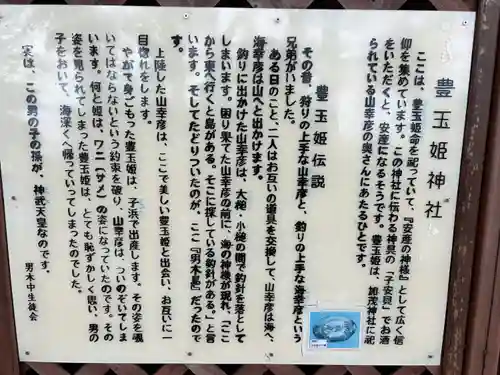 豊玉姫神社
ここは、豊玉姫命を祀っていて、『安産の神様』として広く信
仰を集めています。この神社に伝わる神具の「子安貝」でお酒
をいただくと、安産になるそうです。豊玉姫は、加茂神社に祀
られている山幸彦の奥さんにあたるひとです。
豊玉姫伝説
その昔、狩りの上手な山幸彦と、釣りの上手な海幸彦という
兄弟がいました。
ある日のこと、二人はお互いの道具を交換して、山幸彦は海へ、
海幸彦は山へと出かけます。
釣りに出かけた山幸彦は、大槌・小槌の間で釣針を落として
しまいます。困り果てた山幸彦の前に、海の神様が現れ、「ここ
から東へ行くと島がある。そこに探している釣針がある。」と言
います。そしてたどりついたのが、ここ『男木島』だったので
す。
上陸した山幸彦は、ここで美しい豊玉姫と出会い、お互いに一
目惚れをします。
やがて身ごもった豊玉姫は、子浜で出産します。その姿を覗
いてはならないという約束を破り、山幸彦は、ついのぞいてしま
います。何と姫は、ワニ（サメ）の姿になっていたのです。その
姿を見られてしまった豊玉姫は、とても恥ずかしく思い、男の
子をおいて、海深くへ帰っていってしまったのでした。
実は、この男の子の孫が、神武天皇なのです。
男木中生徒会